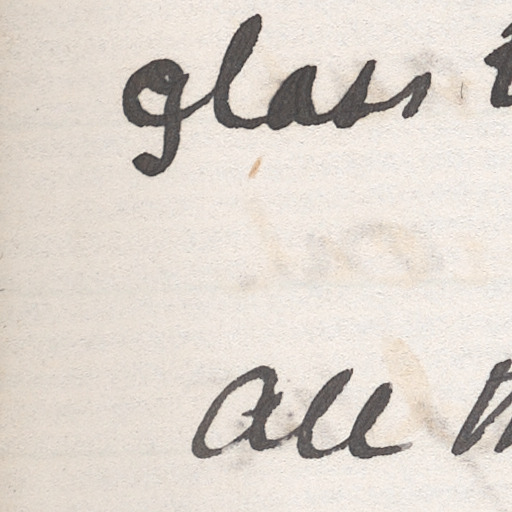 glass
all